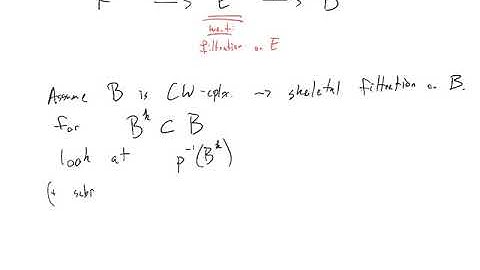 F → E → B
want:
filtration on E
Assume B is CW-cplx. ⇝ skeletal filtration on B.
for B^k ⊂ B
look at p^{-1}(B^k)
(+ subs